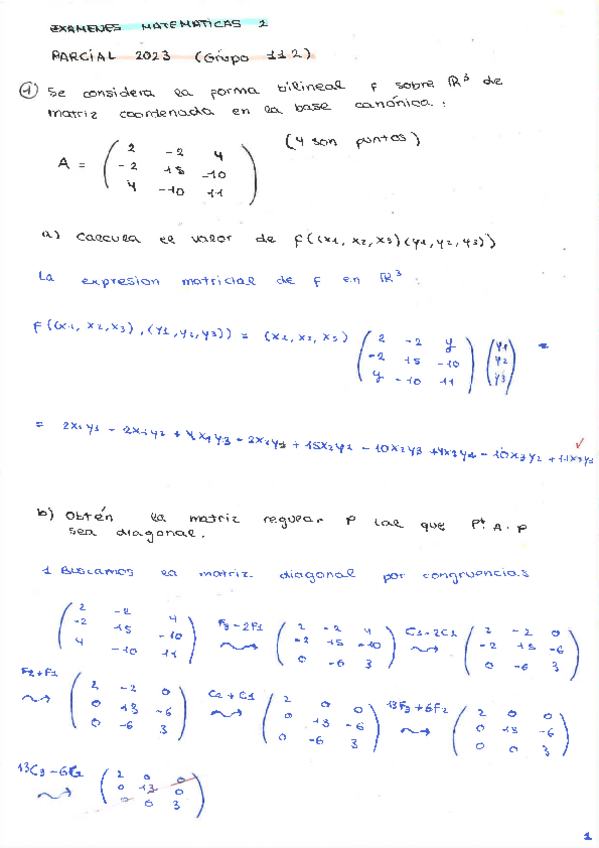 EXAMENES MATEMATICAS 2
PARCIAL 2023 (Grupo 112)
1) Se considera la forma bilineal f sobre ℝ³ de
matriz coordenada en la base canónica.:
A = ( 2 -2 4 ; -2 15 -10 ; 4 -10 11 ) (4 son puntos)
a) Calcula el valor de f((x1, x2, x3)(y1, y2, y3))
La expresion matricial de f en ℝ³ :
f((x1, x2, x3), (y1, y2, y3)) = (x1, x2, x3) ( 2 -2 4 ; -2 15 -10 ; 4 -10 11 ) ( y1 ; y2 ; y3 ) =
= 2x1y1 - 2x1y2 + 4x1y3 - 2x2y1 + 15x2y2 - 10x2y3 + 4x3y1 - 10x3y2 + 11x3y3 ✓
b) Obtén la matriz regular P tal que Pt. A. P
sea diagonal.
1 Buscamos la matriz diagonal por congruencias
( 2 -2 4 ; -2 15 -10 ; 4 -10 11 ) F3-2F1 ⇝ ( 2 -2 4 ; -2 15 -10 ; 0 -6 3 ) C3-2C1 ⇝ ( 2 -2 0 ; -2 15 -6 ; 0 -6 3 )
F2+F1 ⇝ ( 2 -2 0 ; 0 13 -6 ; 0 -6 3 ) C2+C1 ⇝ ( 2 0 0 ; 0 13 -6 ; 0 -6 3 ) 13F3+6F2 ⇝ ( 2 0 0 ; 0 13 -6 ; 0 0 3 )
13C3-6C2 ⇝ ( 2 0 0 ; 0 13 0 ; 0 0 3 )
1